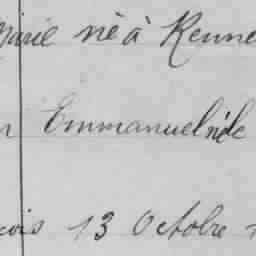 Marie né à Renne
n Emmanuel né le
cois 13 Octobre